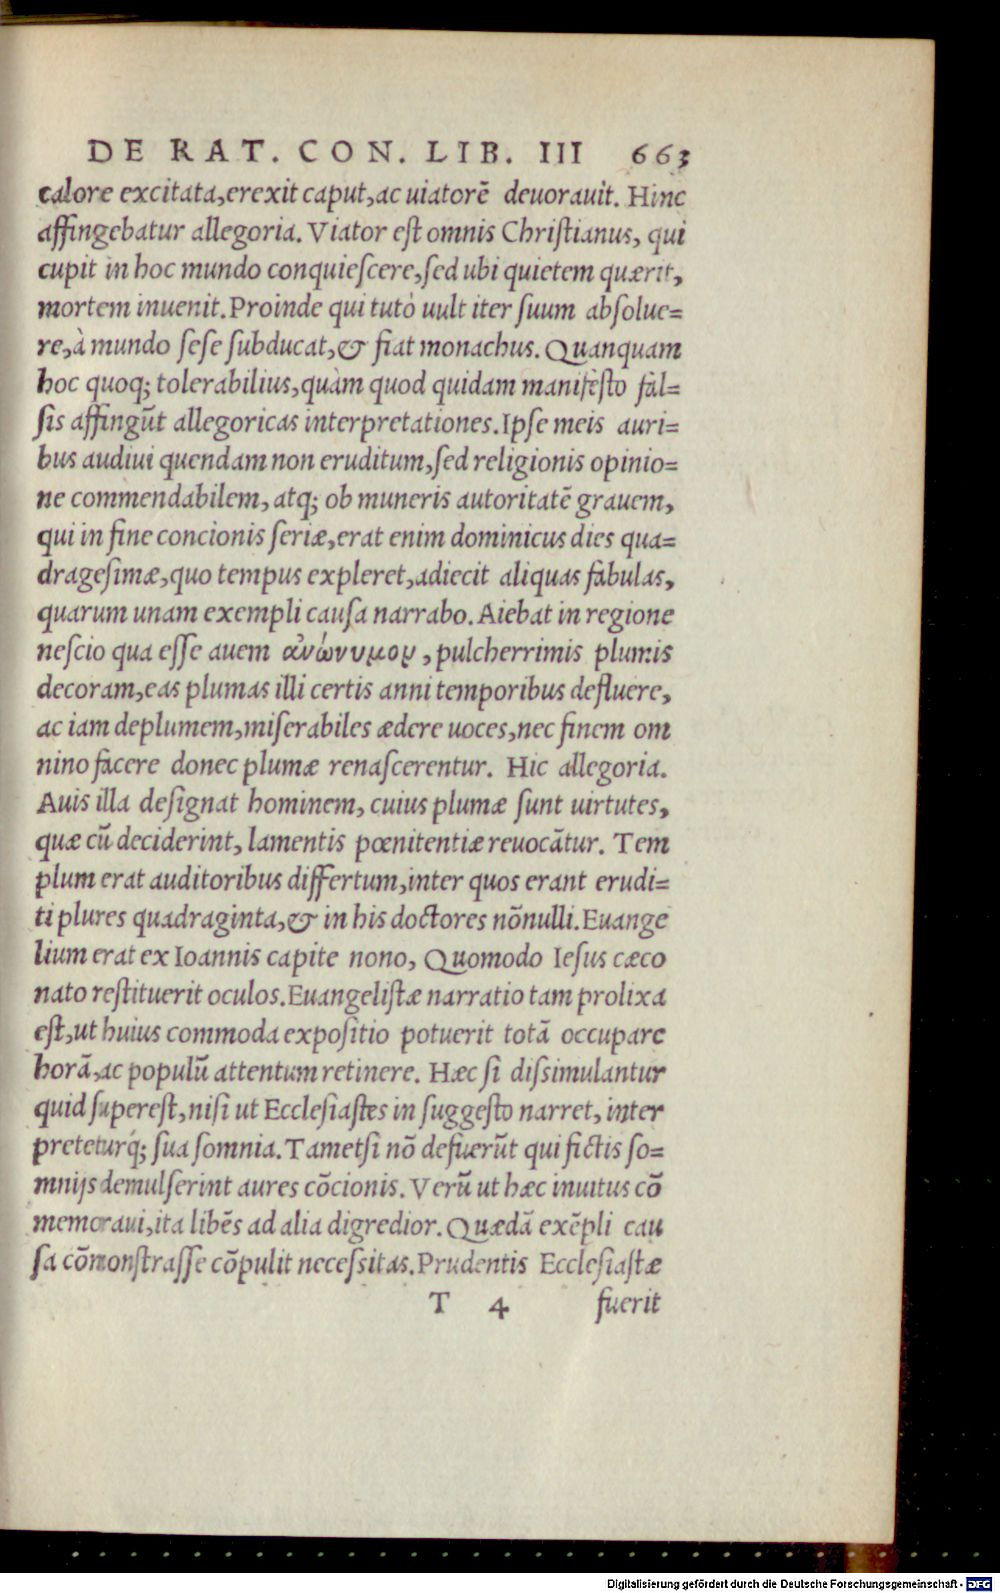 DE RAT. CON. LIB. III 663
calore excitata, erexit caput, ac uiatorē deuorauit. Hinc
affingebatur allegoria. Viator est omnis Christianus, qui
cupit in hoc mundo conquiescere, sed ubi quietem quærit,
mortem inuenit. Proinde qui tutò uult iter suum absolue=
re, à mundo sese subducat, & fiat monachus. Quanquam
hoc quoq; tolerabilius, quàm quod quidam manifesto fal=
sis affingūt allegoricas interpretationes. Ipse meis auri=
bus audiui quendam non eruditum, sed religionis opinio=
ne commendabilem, atq; ob muneris autoritatē grauem,
qui in fine concionis seriæ, erat enim dominicus dies qua=
dragesimæ, quo tempus expleret, adiecit aliquas fabulas,
quarum unam exempli causa narrabo. Aiebat in regione
nescio qua esse auem ἀνώνυμον, pulcherrimis plumis
decoram, eas plumas illi certis anni temporibus defluere,
ac iam deplumem, miserabiles ædere uoces, nec finem om
nino facere donec plumæ renascerentur. Hic allegoria.
Auis illa designat hominem, cuius plumæ sunt uirtutes,
quæ cū deciderint, lamentis pœnitentiæ reuocātur. Tem
plum erat auditoribus differtum, inter quos erant erudi=
ti plures quadraginta, & in his doctores nōnulli. Euange
lium erat ex Ioannis capite nono, Quomodo Iesus cæco
nato restituerit oculos. Euangelistæ narratio tam prolixa
est, ut huius commoda expositio potuerit totā occupare
horā, ac populū attentum retinere. Hæc si dissimulantur
quid superest, nisi ut Ecclesiastes in suggesto narret, inter
preteturq́; sua somnia. Tametsi nō defuerūt qui fictis so=
mnijs demulserint aures cōcionis. Verū ut hæc inuitus cō
memoraui, ita libēs ad alia digredior. Quædā exēpli cau
sa cōmonstrasse cōpulit necessitas. Prudentis Ecclesiastæ
T 4 fuerit
Digitalisierung gefördert durch die Deutsche Forschungsgemeinschaft - DFG